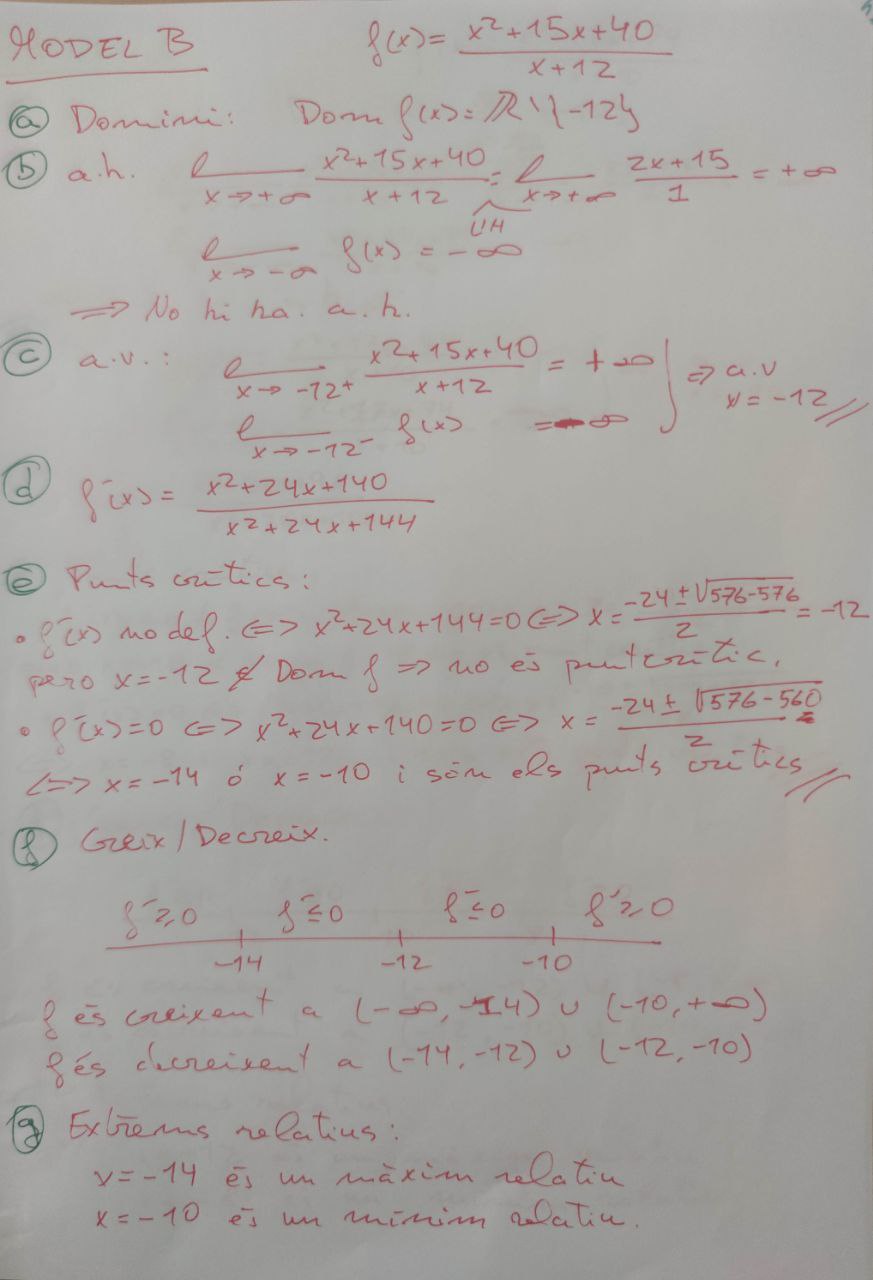 MODEL B f(x) = (x²+15x+40)/(x+12)
ⓐ Domini: Dom f(x) = ℝ \ {-12}
ⓑ a.h. l (x→+∞) (x²+15x+40)/(x+12) = (L'H) l (x→+∞) (2x+15)/1 = +∞
l (x→-∞) f(x) = -∞
⟹ No hi ha a.h.
ⓒ a.v.: l (x→-12⁺) (x²+15x+40)/(x+12) = +∞ } ⇒ a.v
l (x→-12⁻) f(x) = -∞ x = -12 //
ⓓ f'(x) = (x²+24x+140)/(x²+24x+144)
ⓔ Punts crítics:
• f'(x) no def. ⟺ x²+24x+144=0 ⟺ x = (-24±√(576-576))/2 = -12
pero x=-12 ∉ Dom f ⇒ no és punt crític.
• f'(x)=0 ⟺ x²+24x+140=0 ⟺ x = (-24±√(576-560))/2
⟺ x=-14 ó x=-10 i són els punts crítics //
ⓕ Creix/Decreix.
f'≥0 f'≤0 f'≤0 f'≥0
-14 -12 -10
f és creixent a (-∞,-14) ∪ (-10,+∞)
f és decreixent a (-14,-12) ∪ (-12,-10)
ⓖ Extrems relatius:
x=-14 és un màxim relatiu
x=-10 és un mínim relatiu.